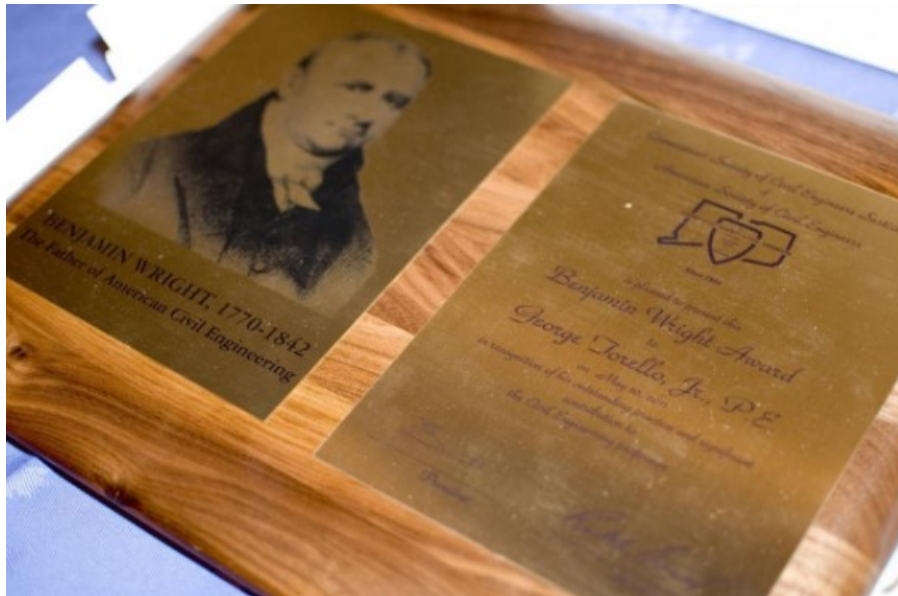 BENJAMIN WRIGHT, 1770-1842
The Father of American Civil Engineering
Society of Civil Engineers
American Society of Civil Engineers
is pleased to present this
Benjamin Wright Award
to
George Torello, Jr., P.E
on May 10, 2011
in recognition of his outstanding promotion and
contribution to
the Civil Engineering profession
President